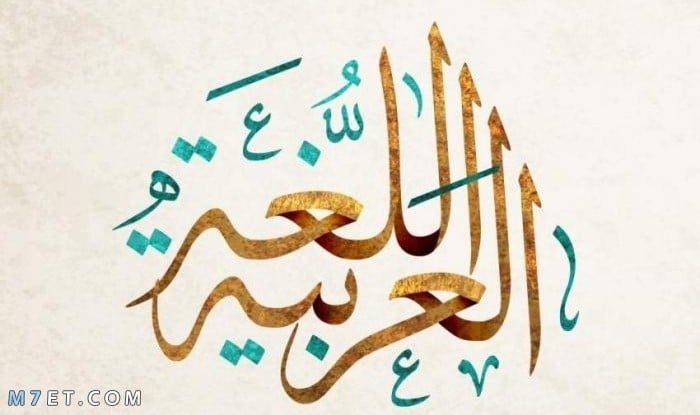 اللُّغَة
العربية
M7ET.COM